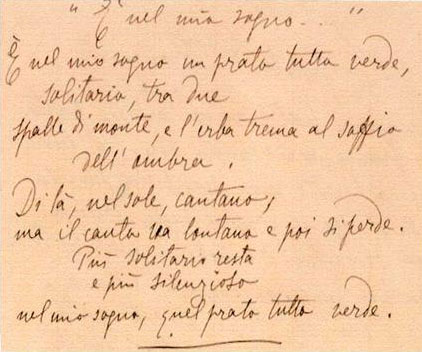 "È nel mio sogno..."
È nel mio sogno un prato tutto verde,
solitario, tra due
spalle di monte, e l'erba trema al soffio
dell'ombra.
Di là, nel sole, cantano,
ma il canto va lontano e poi si perde.
Più solitario resta
e più silenzioso
nel mio sogno, quel prato tutto verde.